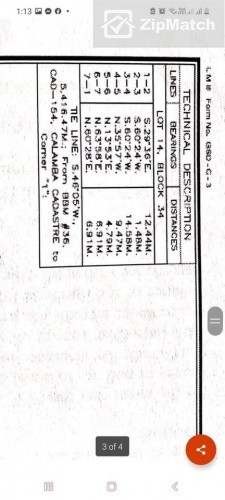 1:13
ZipMatch
L M B Form No. GSD-G-3
TECHNICAL DESCRIPTION
LINES BEARINGS DISTANCES
LOT 14, BLOCK 34
1-2 S.29°36'E. 12.44M.
2-3 S.60°24'W. 1.48M.
3-4 14.58M.
4-5 N.35°57'W. 9.47M.
5-6 N.13°53'E. 4.79M.
6-7 N.63°38'E. 6.91M.
7-1 N.60°28'E. 6.91M.
TIE LINE: S.46°05'W.,
5,416.47M.; From BBM #36,
CAD-154, CALAMBA CADASTRE to
Corner "1".
3 of 4